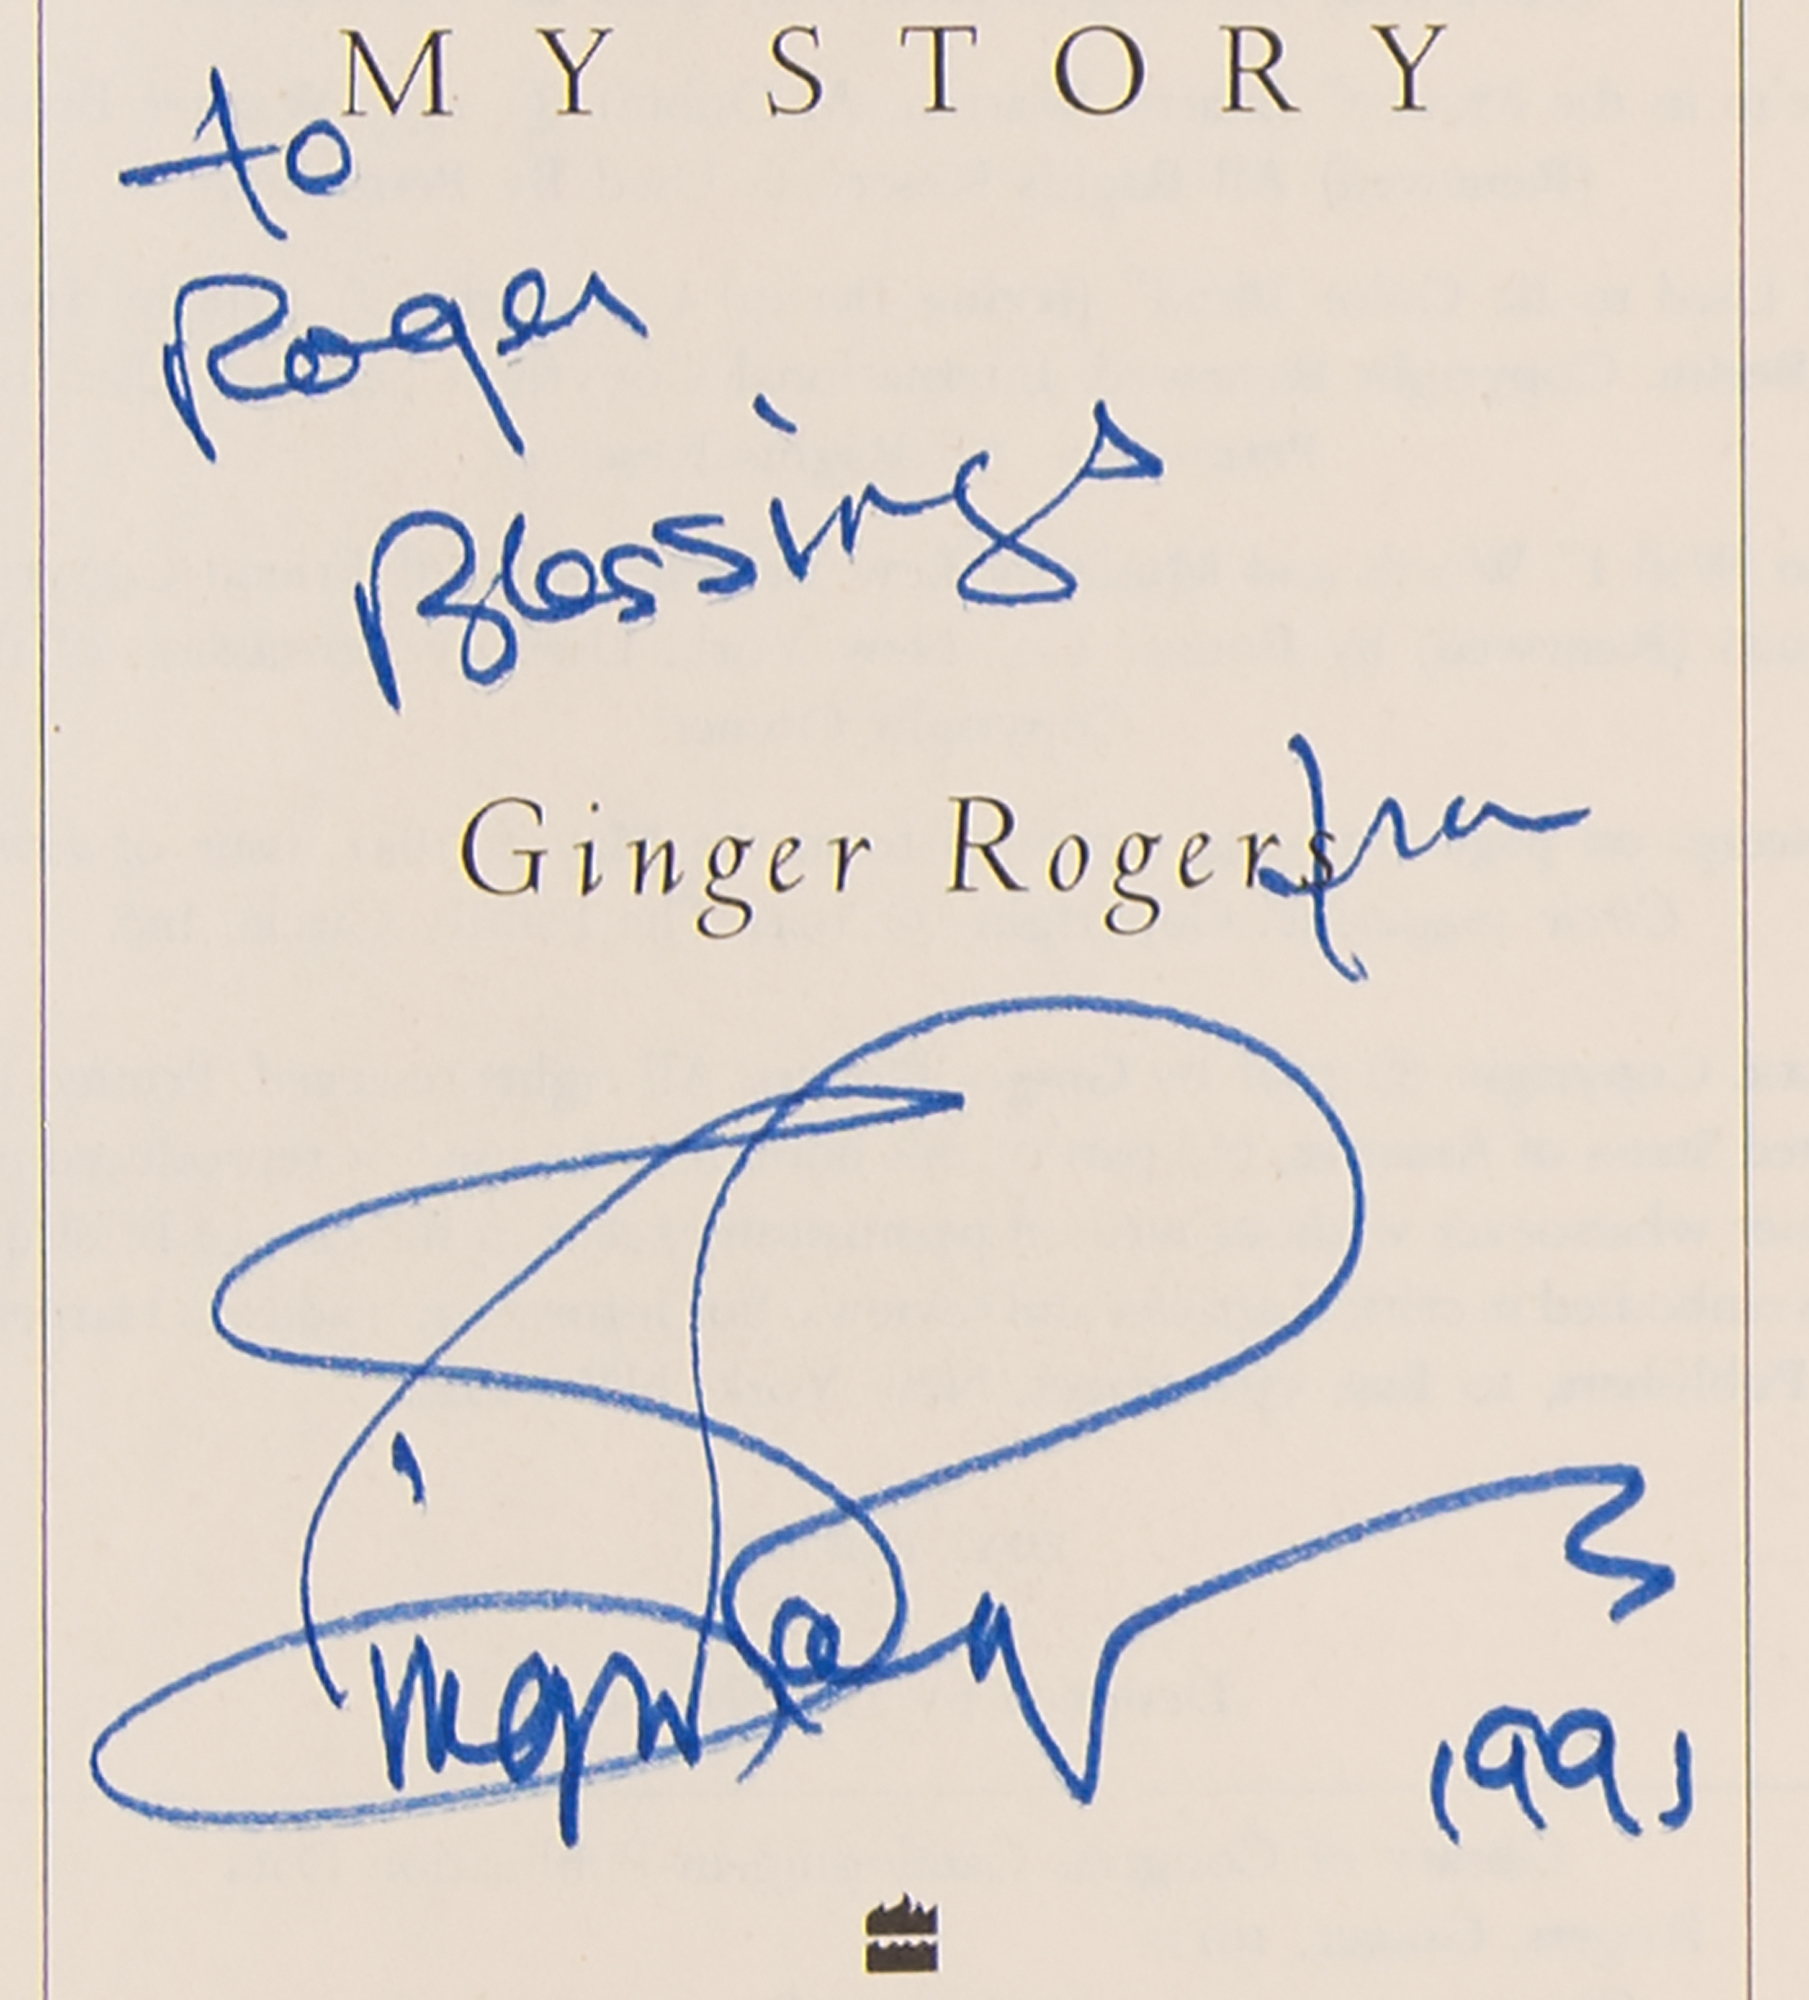 MY STORY
to
Roger
Blessings
from
Ginger Rogers
Ginger Rogers
1991